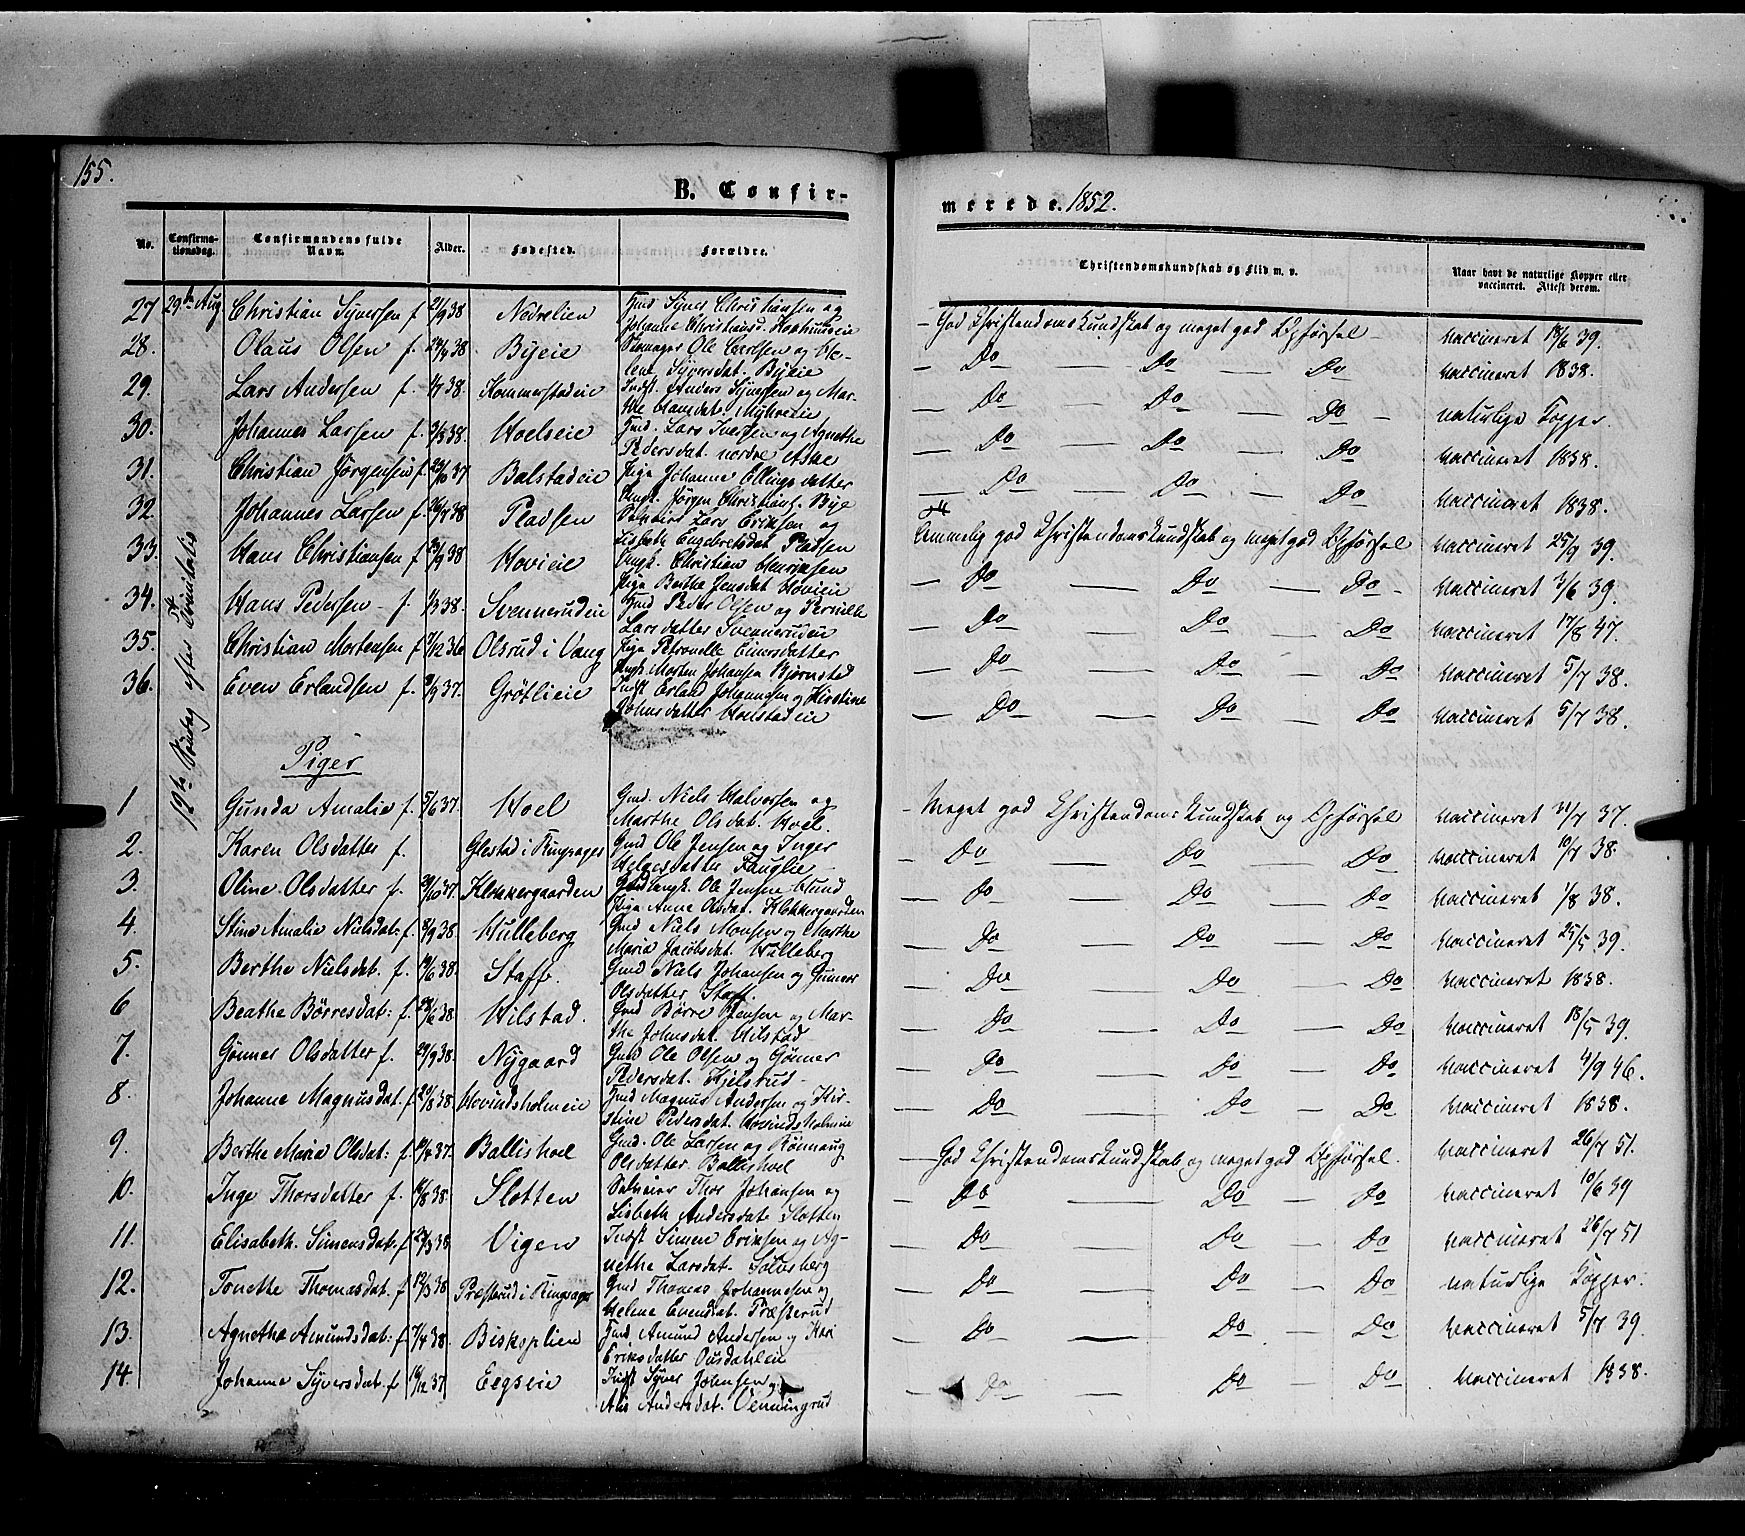 155.
B. Confir-
merede. 1852.
No.
Confirma-
tionsdag.
Confirmandens fulde
Navn.
Alder.
Fødested.
Forældre.
Christendomskundskab og Flid m. v.
Naar havt de naturlige Kopper eller
vaccineret. Attest derom.
29de Aug
12te Søndag efter Trinitatis
27 Christian Syversen f 21/9 38 Nedrelien Gmd. Syver Christiansen og
Johanne Christiansd.
— God Christendomskundskab og meget god Opførsel — vaccineret 18/6 39.
28. Olaus Olsen f. 38. Byeie Ole Carlsen og He-
lene Syversdat. Byeie
— Do — Do — Do vaccineret 1838.
29. Lars Andersen f. 38. Kommerstadeie Indst. Anders Syversen og Mar-
the Hansdat. Myhreeie
— Do — Do — Do — naturlige Kopper.
30. Johannes Larsen f. 38. Hoelseie Lars Iversen og Agnethe
Pedersdat. nordre Aske
— Do — Do — Do vaccineret 1838.
31. Christian Jørgensen f. 37 Balstadeie Pige Johanne Ellingsdatter
Ungk. Jørgen Christians. Bye
— Do — Do — Do vaccineret 1838.
32. Johannes Larsen f. 38 Pladsen Lars Eriksen og
Lisbeth Engebretsdat. Pladsen
Temmelig god Christendomskundskab og meget god Opførsel vaccineret 25/9 39.
33. Hans Christiansen f. 38 Hovieie Ungk. Christian Henriksen
Pige Berthe Jensdat Hovieie
— Do — Do — Do — vaccineret 3/6 39.
34. Hans Pedersen f. 38. Svennerudeie Peder Olsen og Pernille
Larsdatter Svennerudeie
— Do — Do — Do vaccineret 17/8 47.
35. Christian Mortensen f 36 Olsrud i Vang Pige Petronelle Einersdatter
Ungk. Morten Johansen Bjørnstad
— Do — Do — Do vaccineret 5/7 38.
36. Even Erlandsen f. 37. Grøtlieie Indst Erland Johannesen og Kirstine
Johnsdatter
— Do — Do — Do vaccineret 5/7 38.
Piger
1 Gunda Amalie f. 5/6 37. Hoel Gmd. Niels Halvorsen og
Marthe Olsdat. Hoel.
— Meget god Christendomskundskab og Opførsel vaccineret 37.
2. Karen Olsdatter f. Glestad i Ringsager Gmd Ole Jensen og Inger
Helgesdatter Fauglie
— Do — Do — Do vaccineret 10/7 38.
3. Oline Olsdatter f. 37. Klokkergaarden Ungk. Ole Jensen Hund
Pige Anne Olsdat. Klokkergaarden
— Do — Do — Do vaccineret 1/8 38.
4. Stine Amalie Nielsdat. f. 8/9 38. Hulleberg Gmd Niels Monsen og Marthe
Maria Jacobsdat. Hulleberg
— Do — Do — Do vaccineret 25/5 39.
5. Berthe Nielsdat. f. 38. Staff. Gmd Niels Johansen og Gunner
Olsdatter Staff.
— Do — Do — Do vaccineret 1838.
6 Beathe Børresdat: f. 38. Hilstad. Gmd Børre Jensen og Mar-
the Johnsdat. Hilstad
— Do — Do — Do vaccineret 18/5 39.
7. Gønner Olsdatter f. 29/9 38. Nygaard Gmd Ole Olsen og Gønner
Pedersdat. Kjelsrud
— Do — Do — Do vaccineret 4/9 46.
8. Johanne Magnusdat. f. 38 Hovindsholmeie Magnus Andersen og Kir-
stine Pedersdat. Hovindsholmeie
— Do — Do — Do vaccineret 1838.
9. Berthe Maria Olsdat: f. 37. Ballishoel Gmd. Ole Larsen og Rønnaug
Olsdatter Ballishoel
— God Christendomskundskab og meget god Opførsel. vaccineret 26/7 51.
10. Inge Thorsdatter f. 38. Slotten Thor Johansen og
Lisbeth Andersdat. Slotten
— Do — Do — Do vaccineret 10/6 39
11. Elisabeth Simensdat. f 38 Vigen Indst Simen Eriksen og Ag-
nethe Larsdat.
— Do — Do — Do vaccineret 26/7 51
12. Tonette Thomasdat. f 38 Præsterud i Ringsager Gmd Thomas Johannesen og
Helene Evensdat. Præsterud
— Do — Do — Do naturlige Kopper.
13. Agnethe Amundsdat: f 7/4 38. Biskoplien Amund Andersen og Kari
Eriksdatter
— Do — Do — Do vaccineret 5/7 39.
14. Johanne Syversdat. f 37 Eegseie Indst Syver Johnsen og
Andersdat. Venningrud
— Do — Do — Do vaccineret 1838.